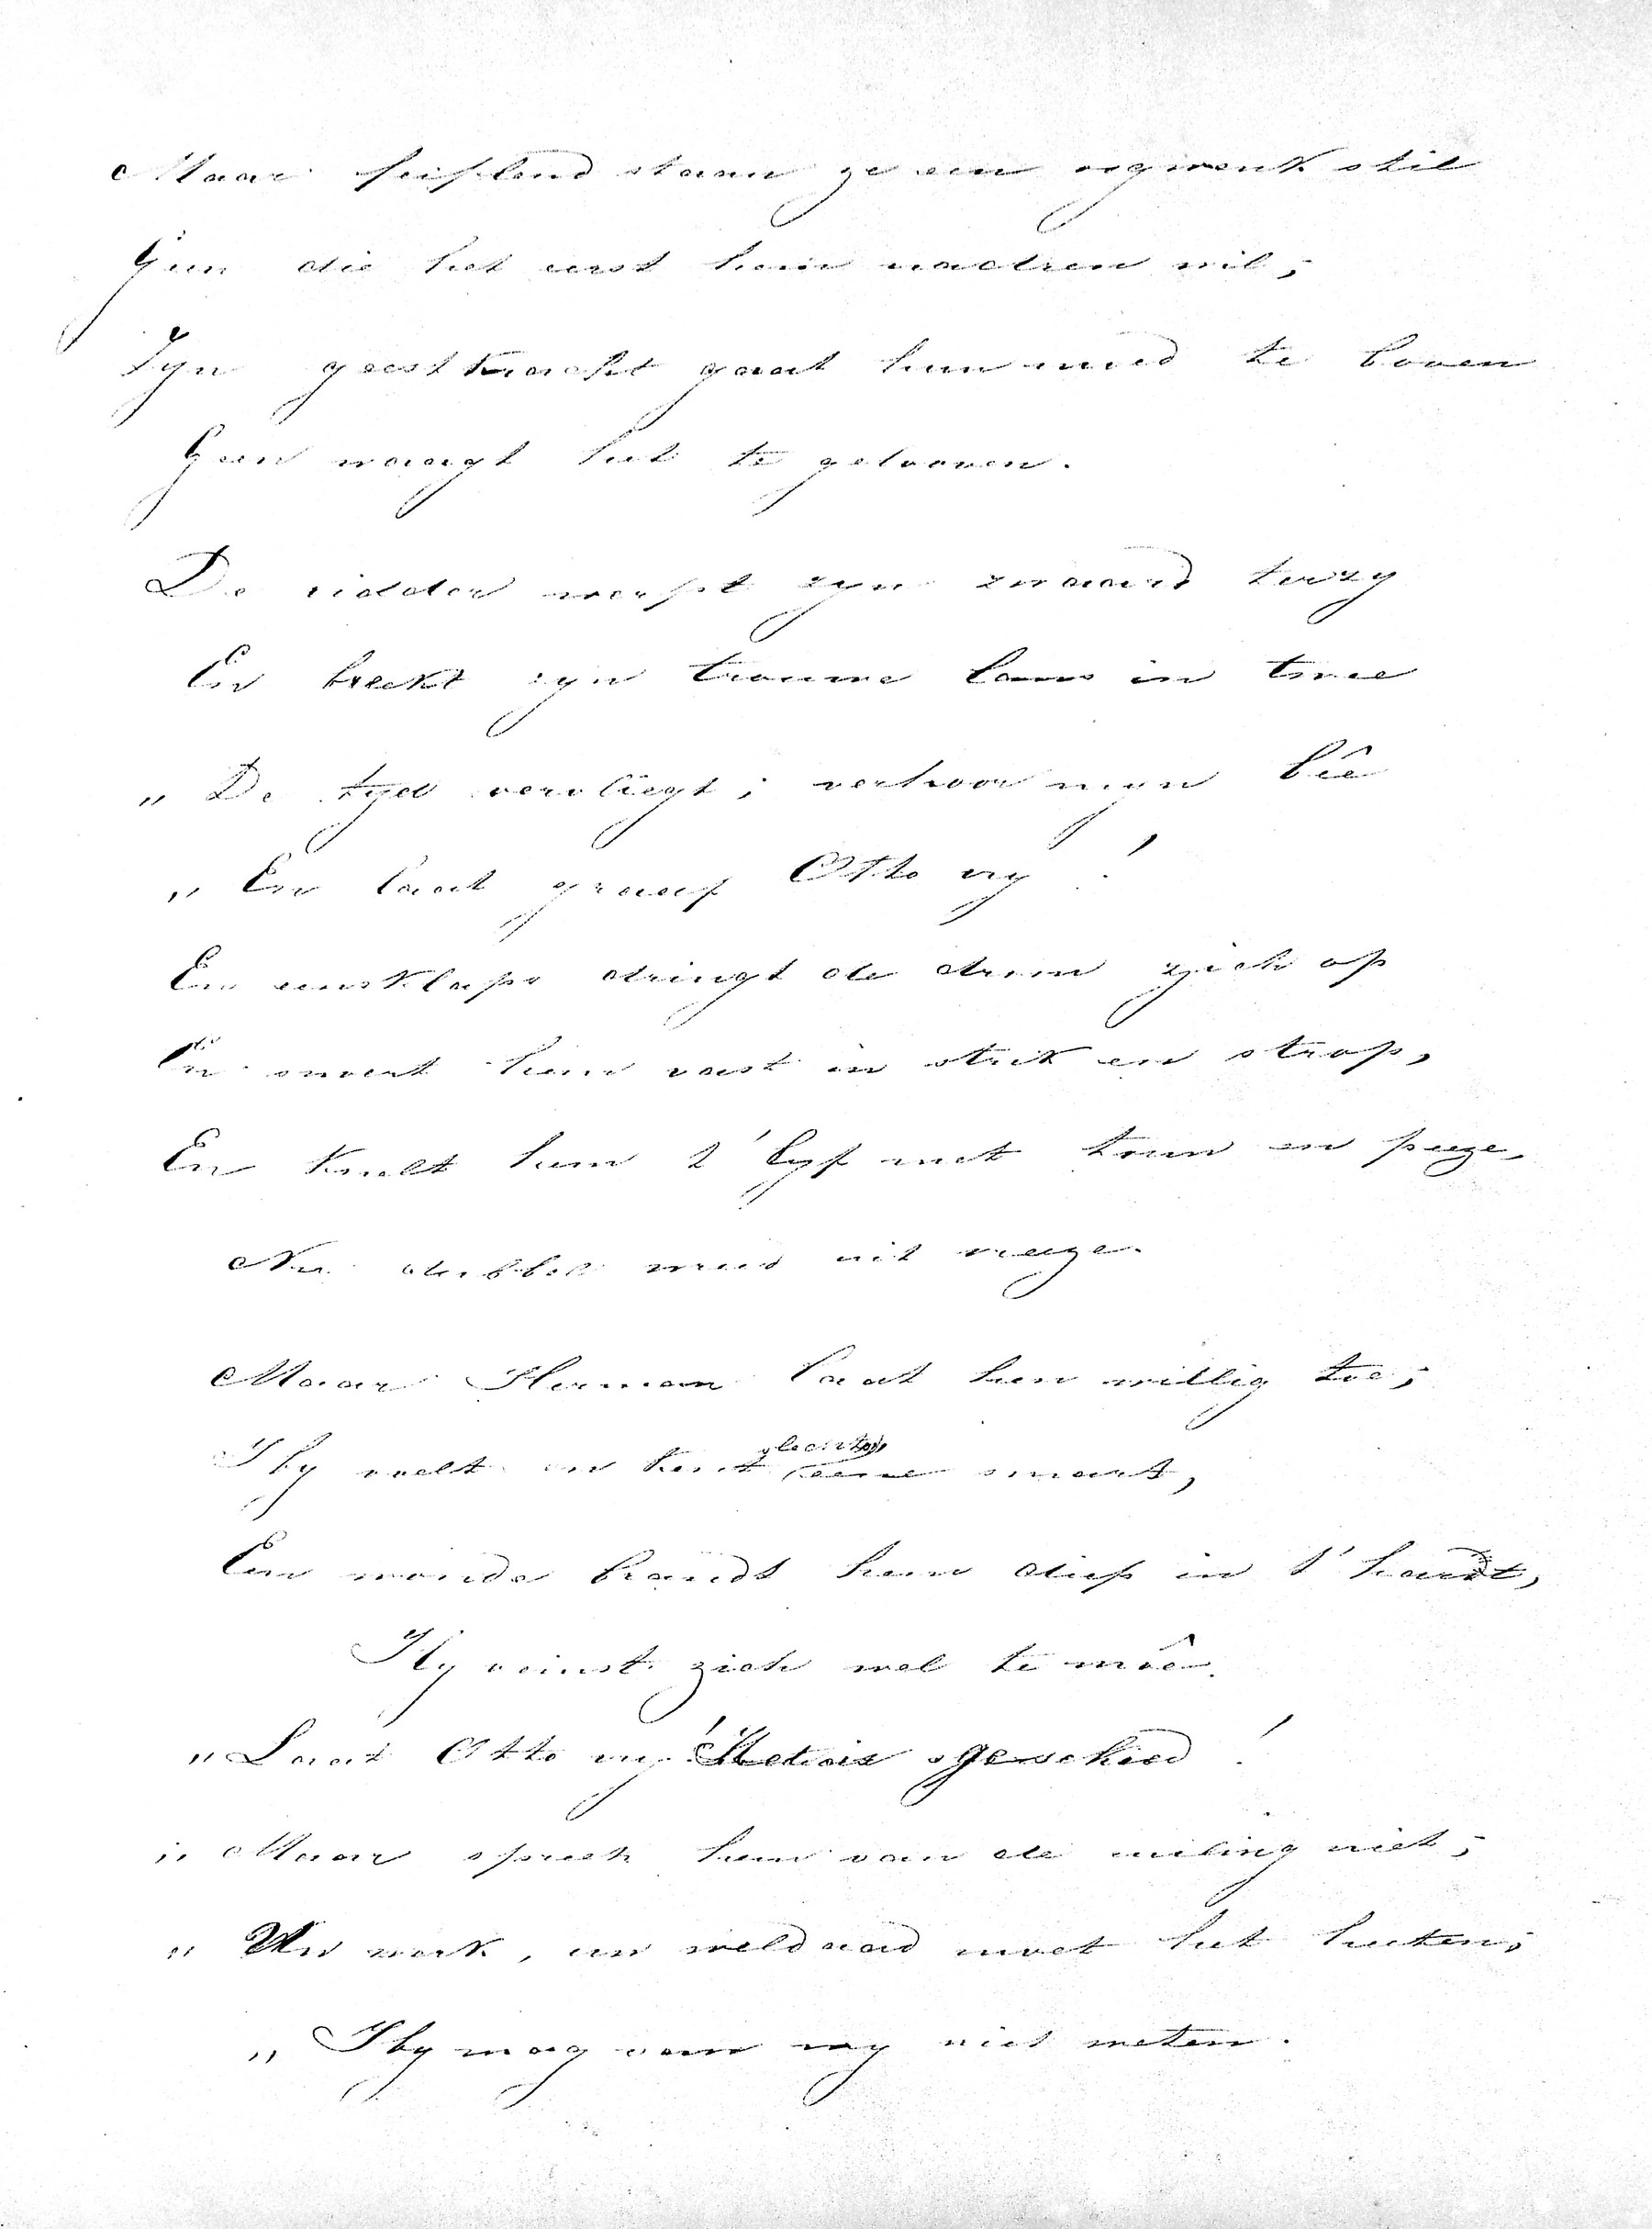 Maar feiflend staan ze een oogwenk stil
Geen die het eerst hem nadren wil;
Zyn geestkracht gaat hun moed te boven
Geen waagt het te gelooven.
De ridder werpt zyn zwaard terzy
En breekt zyn trouwe lans in twee
„ De tyd vervliegt; verhoor myn beê
„ En laat graaf Otto vry!
En eensklaps dringt de drom zich op
En snoert hem vast in strik en strop,
En knelt hem t' lyf met touw en peeze,
Nu dubbel wreed uit vreeze.
Maar Herman laat hen willig toe;
Hy voelt en kent slechts eene smart,
Een wonde brandt hem diep in t' hardt,
Hy veinst zich wel te moê.
„ Laat Otto vry! Het is geschied!
„ Maar spreek hem van de ruiling niet;
„ Uw werk, uw weldaad moet het heeten;
„ Hy mag van my niet weten.